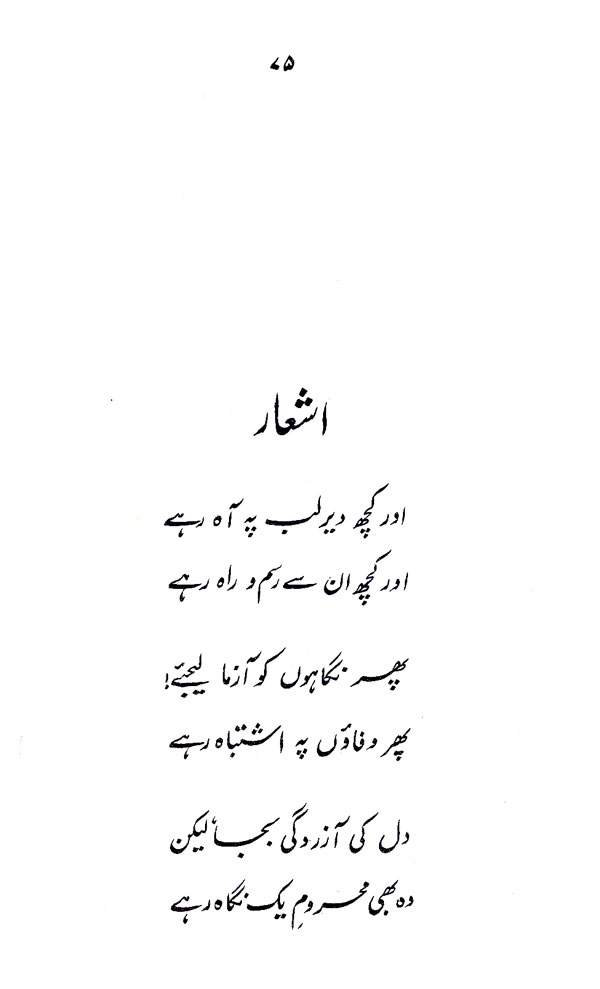 ۷۵
اشعار
اور کچھ دیر لب پہ آہ رہے
اور کچھ ان سے رسم و راہ رہے
پھر نگاہوں کو آزما لیجئے!
پھر وفاؤں پہ اشتباہ رہے
دل کی آزردگی بجا، لیکن
وہ بھی محرومِ یک نگاہ رہے